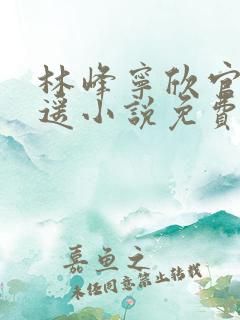 林峰寧欣官
遥小説免費
嘉魚之
未经同意禁止转载